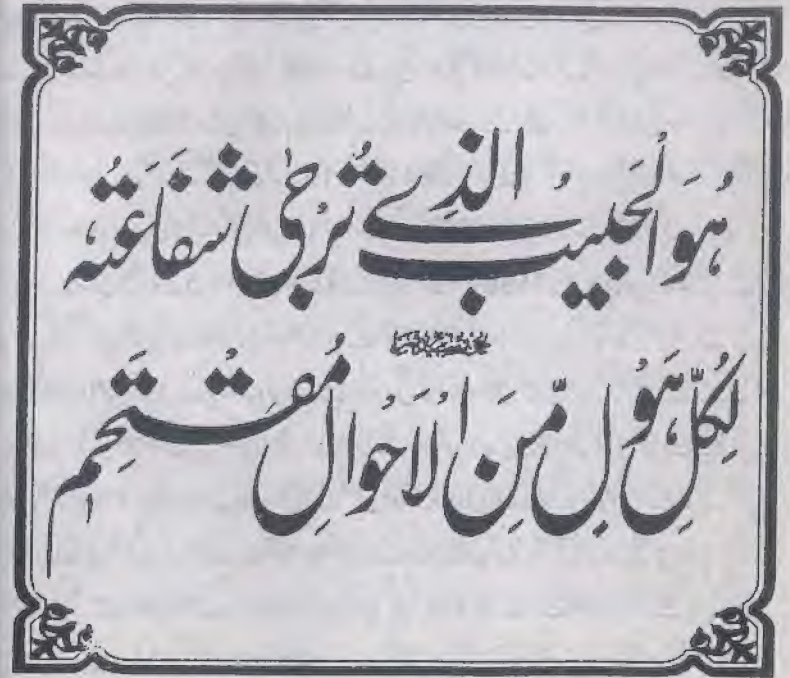 هُوَ الْحَبِيبُ الَّذِے تُرْجٰی شَفَاعَتُهٗ
لِكُلِّ هَوْلٍ مِّنَ الْاَحْوَالِ مُقْتَحِمٖ